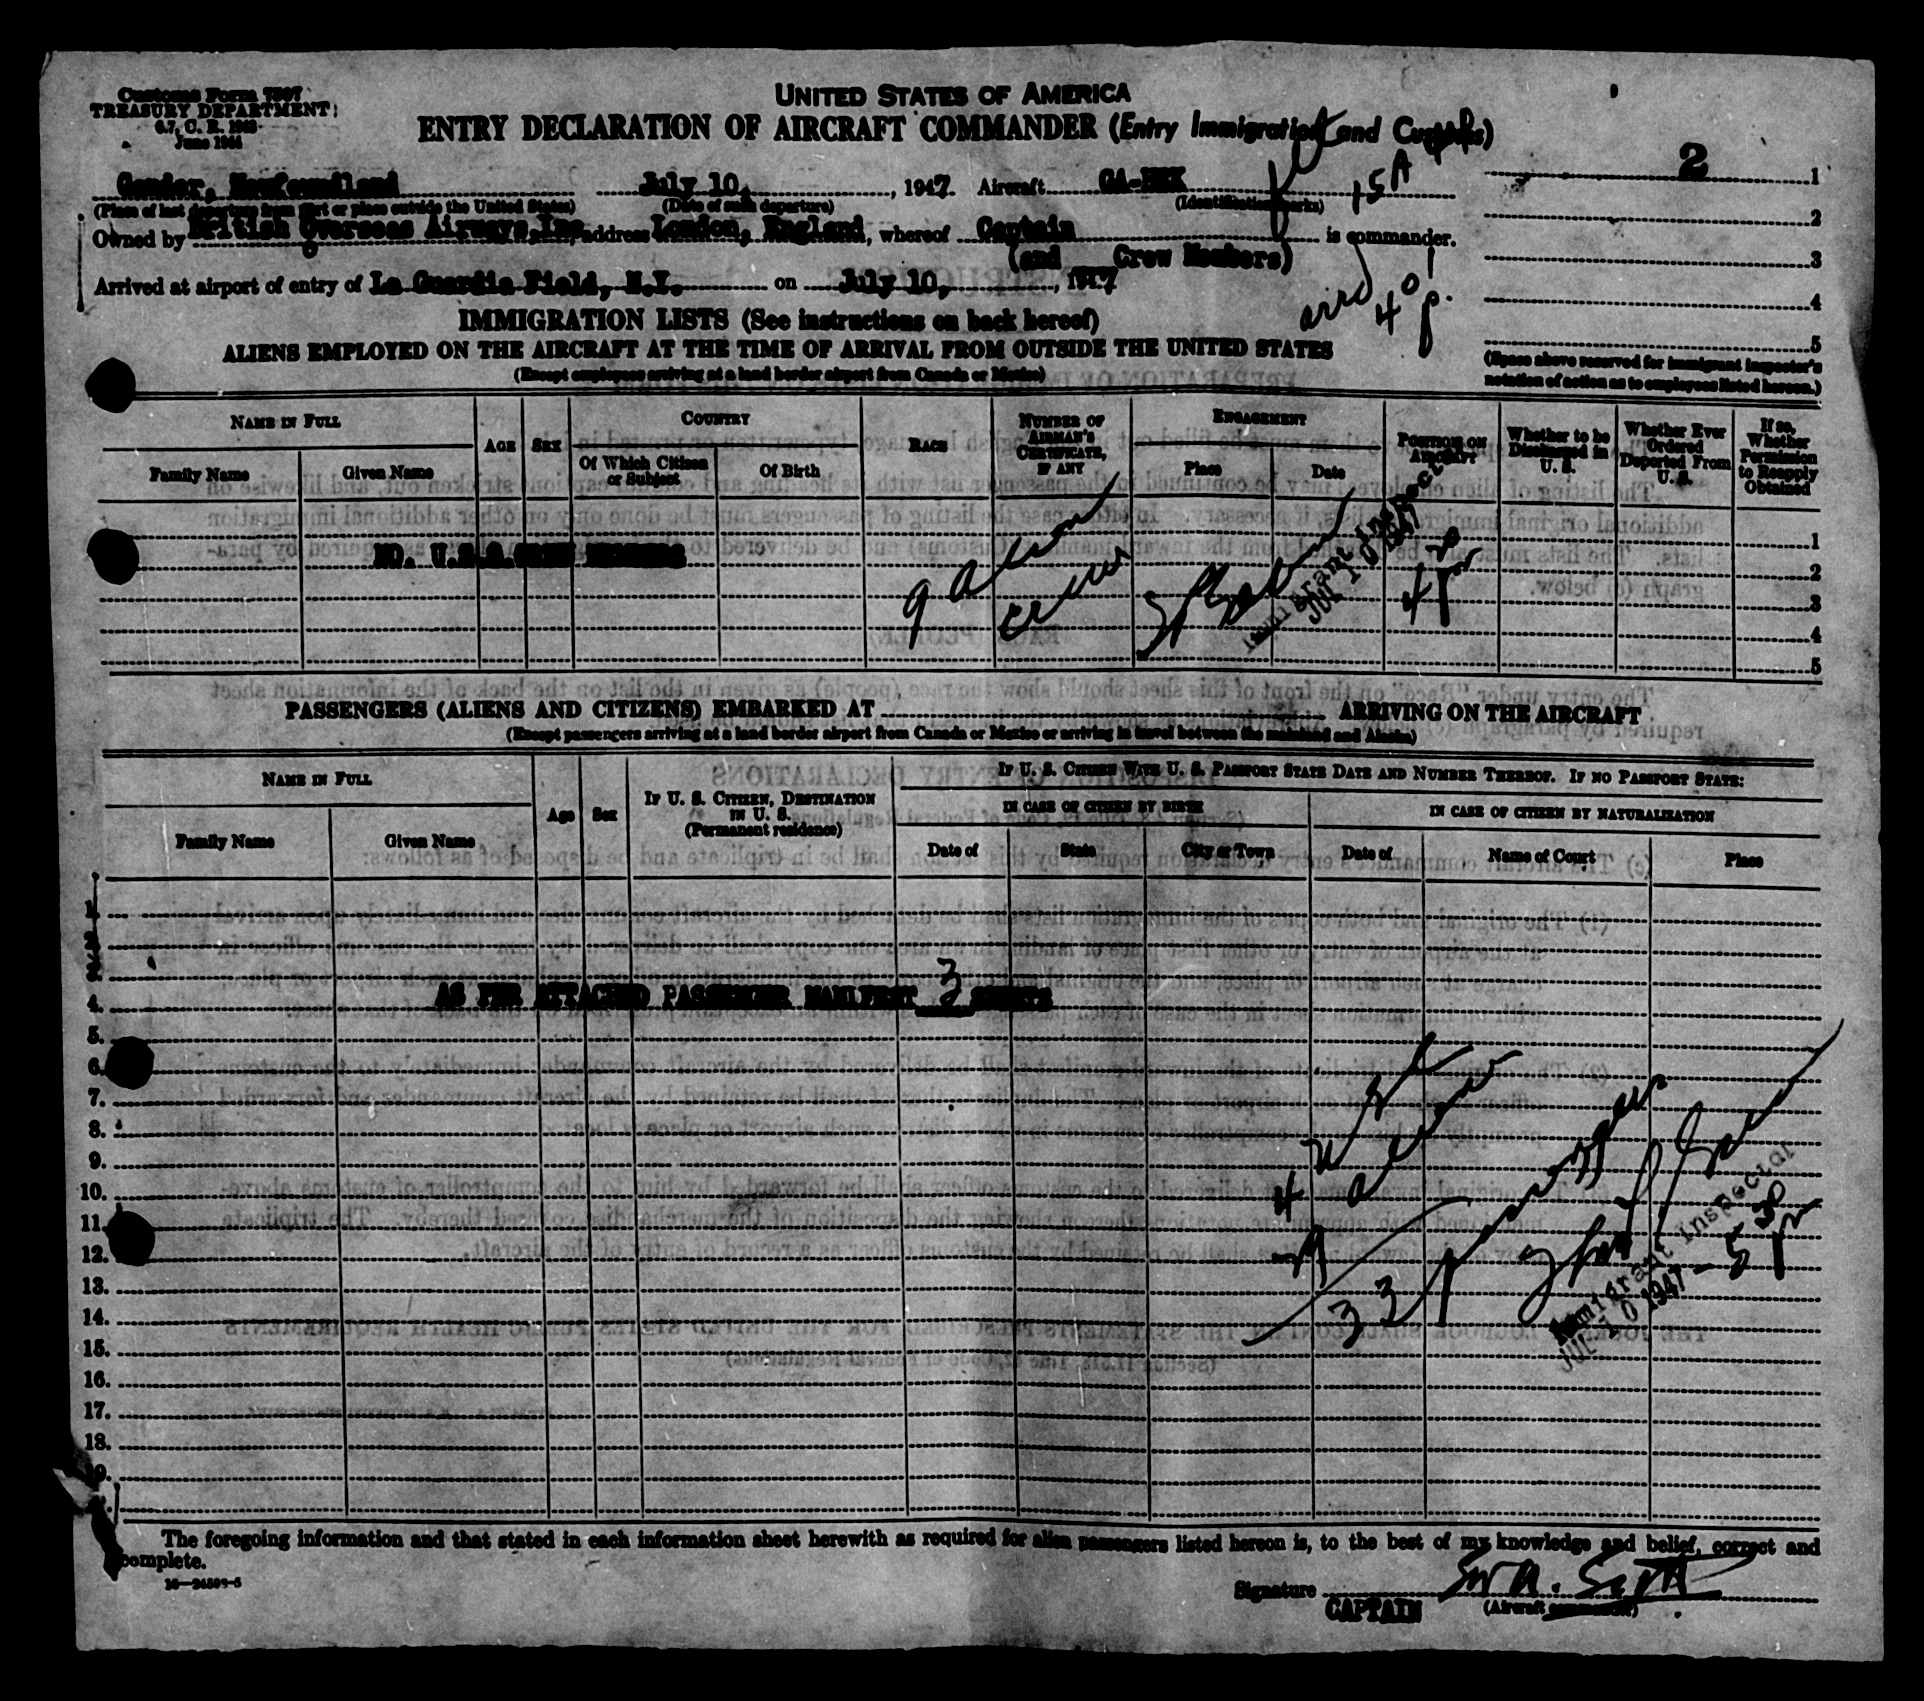 Customs Form 7507
TREASURY DEPARTMENT
June 1944
UNITED STATES OF AMERICA
ENTRY DECLARATION OF AIRCRAFT COMMANDER (Entry Immigration and Customs)
2
Gander, Newfoundland July 10, 1947. Aircraft
15A
(Place of last departure from port or place outside the United States) (Date of such departure) (Identification marks)
Owned by British Overseas Airways Inc, address London, England, whereof Captain is commander.
(and Crew Members)
Arrived at airport of entry of La Guardia Field, N.Y. on July 10, 1947
arrd 4 01 p.
IMMIGRATION LISTS (See instructions on back hereof)
ALIENS EMPLOYED ON THE AIRCRAFT AT THE TIME OF ARRIVAL FROM OUTSIDE THE UNITED STATES
(Except employees arriving at a land border airport from Canada or Mexico)
1
2
3
4
5
(Space above reserved for immigrant inspector's
notation of action as to employees listed hereon.)
NAME IN FULL
Family Name
Given Name
AGE
SEX
COUNTRY
Of Which Citizen
or Subject
Of Birth
RACE
NUMBER OF
AIRMAN'S
CERTIFICATE,
IF ANY
ENGAGEMENT
Place
Date
POSITION ON
AIRCRAFT
Whether to be
Discharged in
U. S.
Whether Ever
Ordered
Deported From
U. S.
If so,
Whether
Permission
to Reapply
Obtained
NO. U.S.A. CREW MEMBERS
9 alien
crew
Immigrant Inspector
JUL 10 1947
1
2
3
4
5
PASSENGERS (ALIENS AND CITIZENS) EMBARKED AT ARRIVING ON THE AIRCRAFT
(Except passengers arriving at a land border airport from Canada or Mexico or arriving in travel between the mainland and Alaska)
NAME IN FULL
Family Name
Given Name
Age
Sex
IF U. S. CITIZEN, DESTINATION
IN U. S.
(Permanent residence)
IF U. S. CITIZEN WITH U. S. PASSPORT STATE DATE AND NUMBER THEREOF. IF NO PASSPORT STATE:
IN CASE OF CITIZEN BY BIRTH
IN CASE OF CITIZEN BY NATURALIZATION
Date of
State
City or Town
Date of
Name of Court
Place
1.
2.
3.
4.
AS PER ATTACHED PASSENGER MANIFEST 3 SHEETS
5.
6.
7.
8.
9.
10.
11.
12.
13.
14.
15.
16.
17.
18.
19.
4 usc
29 aliens
33 passengers
Immigrant Inspector
JUL 10 1947
The foregoing information and that stated in each information sheet herewith as required for alien passengers listed hereon is, to the best of my knowledge and belief, correct and
complete.
Signature
CAPTAIN (Aircraft commander)